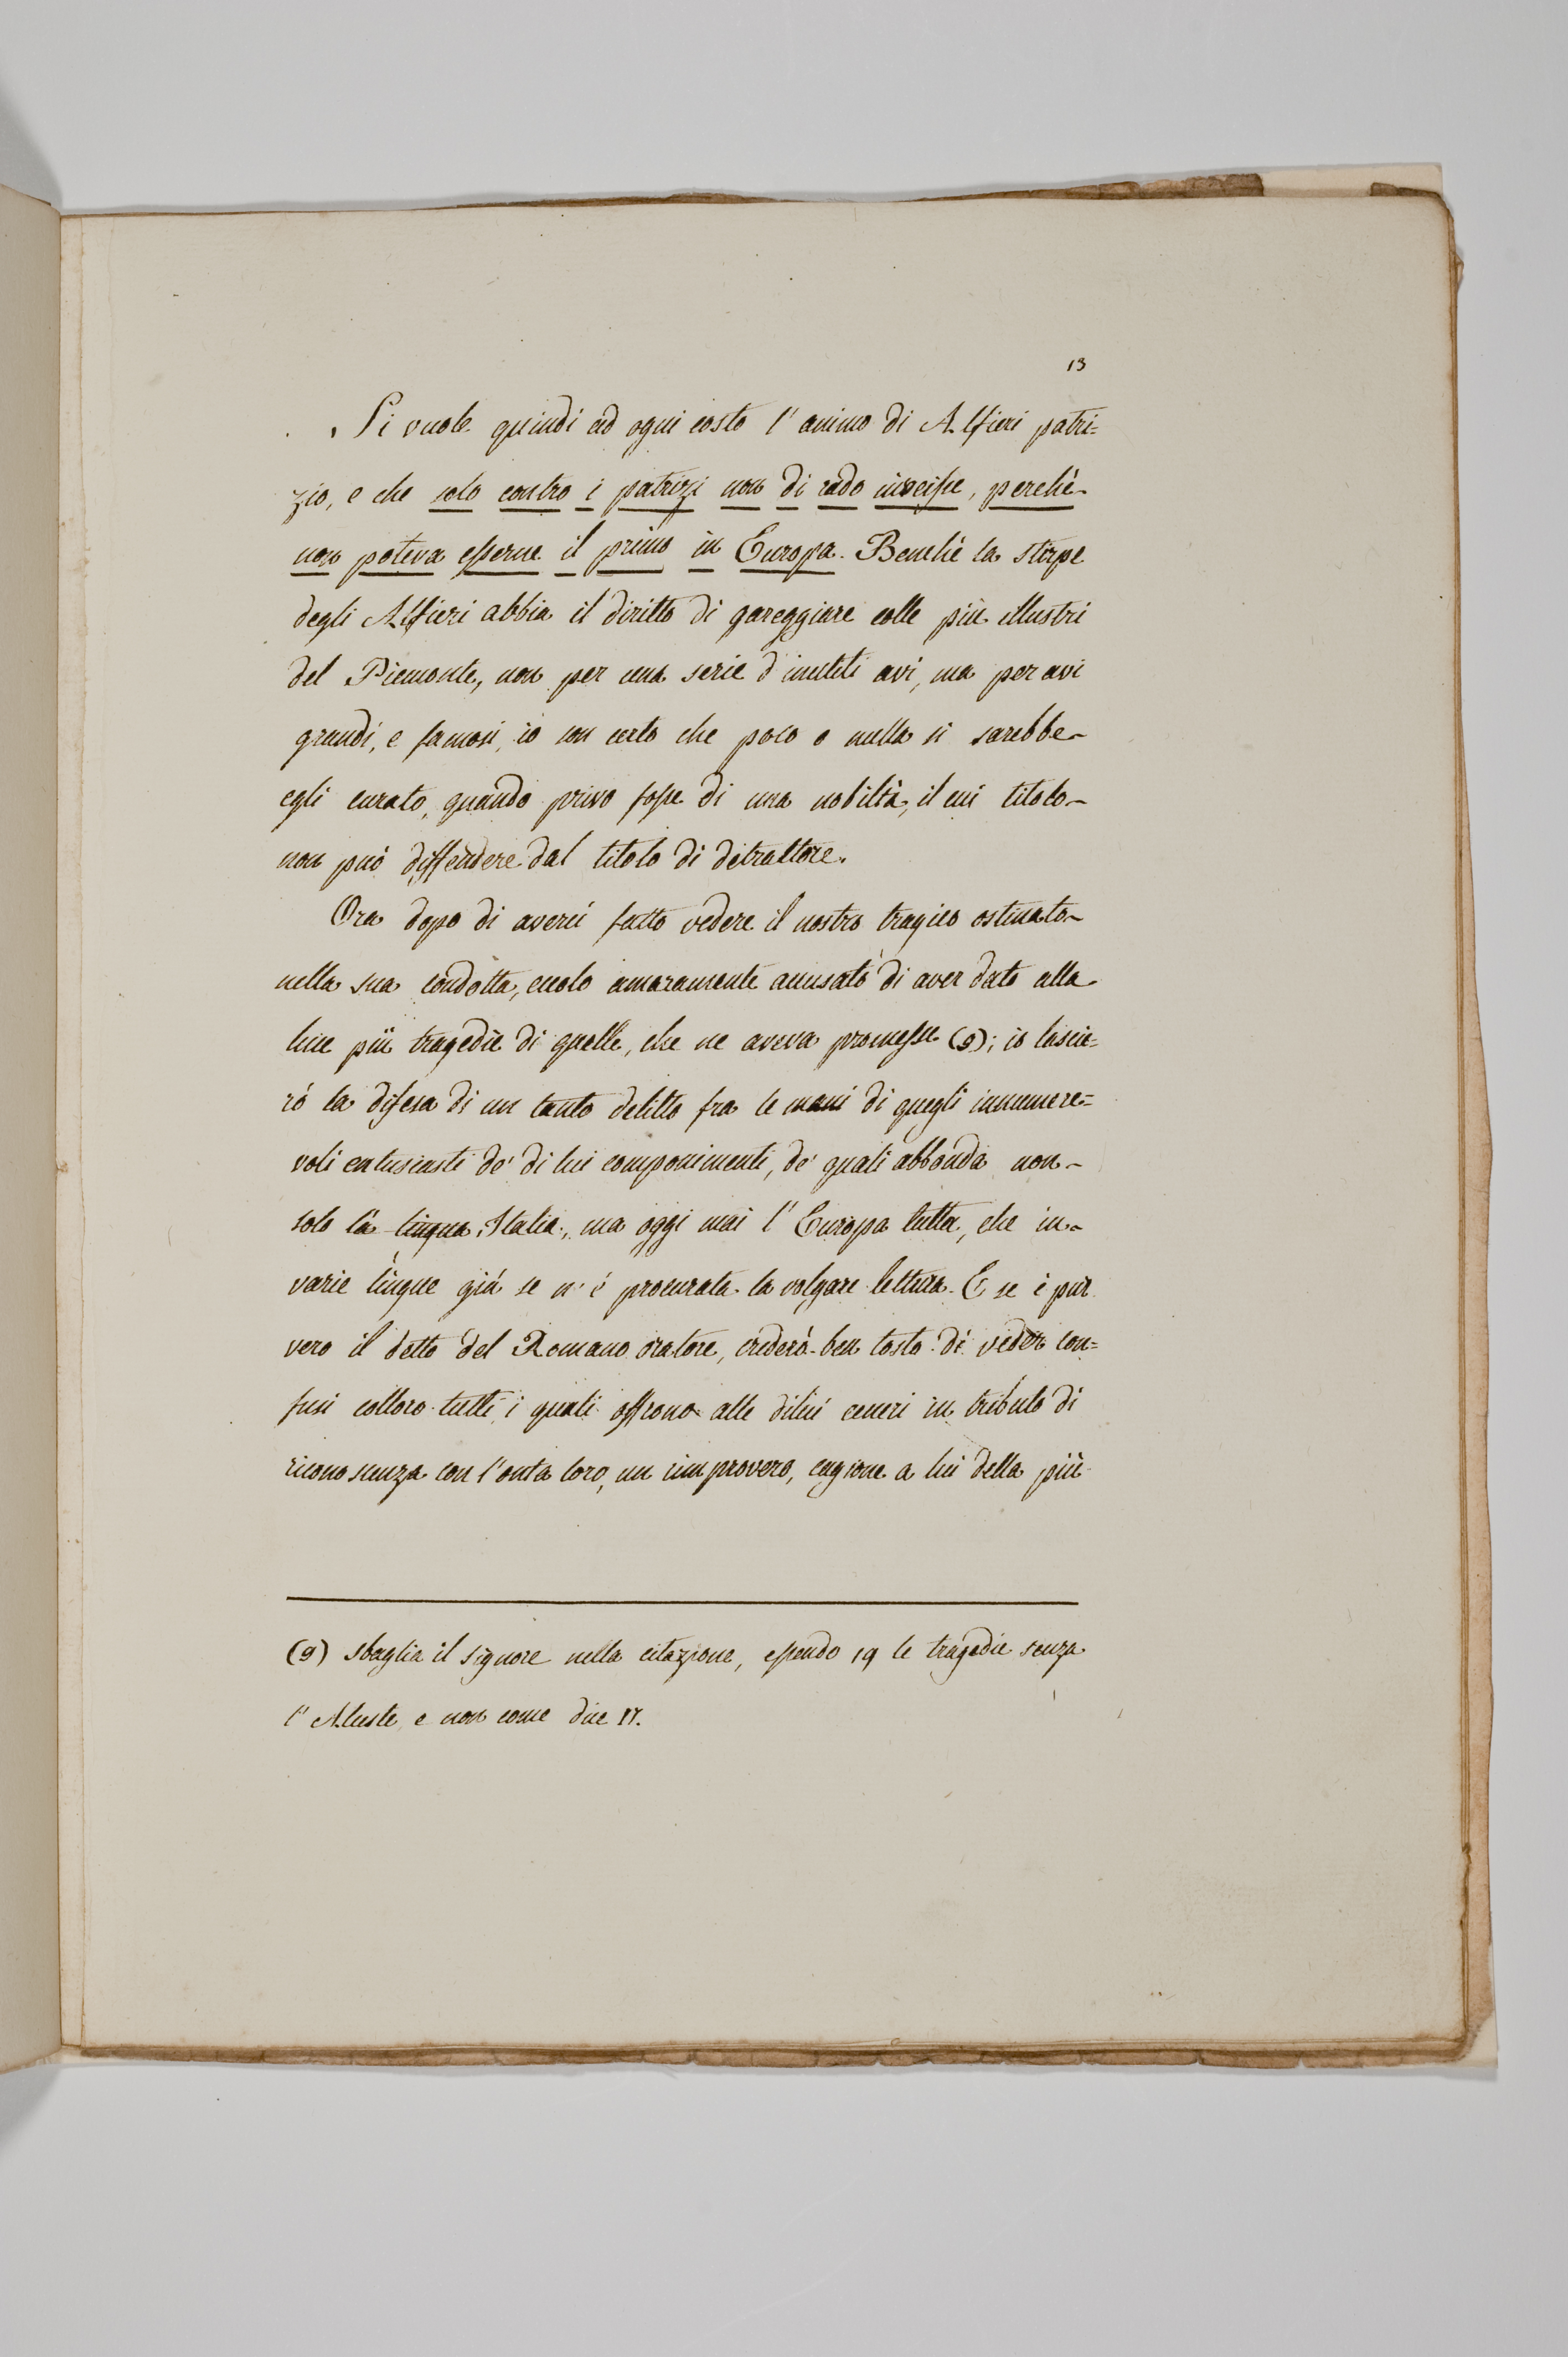 13
Si vuole quindi ad ogni costo l'animo di Alfieri patri=
zio, e che solo contro i patrizi non di rado inveisse, perchè
non poteva esserne il primo in Europa. Benchè la stirpe
degli Alfieri abbia il diritto di gareggiare colle più illustri
del Piemonte, non per una serie d'inutili avi, ma per avi
grandi, e famosi, io son certo che poco o nulla si sarebbe
egli curato, quando privo fosse di una nobiltà, il cui titolo
non può diffendere dal titolo di detrattore.
Ora dopo di averci fatto vedere il nostro tragico ostinato
nella sua condotta, eccolo amaramente accusato di aver dato alla
luce più tragedie di quelle, che ne aveva promesse (9); io lascie=
rò la difesa di un tanto delitto fra le mani di quegli innumere=
voli entusiasti de' di lui componimenti, de' quali abbonda non
solo la lingua Italia, ma oggi mai l'Europa tutta, che in
varie lingue già se n'è procurata la volgare lettura. E se è pur
vero il detto del Romano oratore, crederò ben tosto di veder con=
fusi colloro tutti i quali offrono alle dilui ceneri in tributo di
riconoscenza con l'onta loro, un rimprovero, cagione a lui della più
(9) sbaglia il signore nella citazione, essendo 19 le tragedie senza
l'Alceste, e non come dice 17.